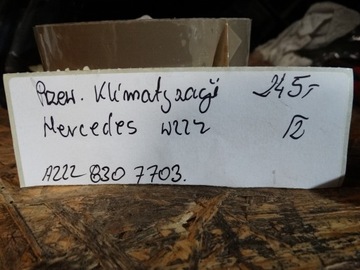 Przew. Klimatyzacji 245,-
Mercedes W222
A222 830 7703.